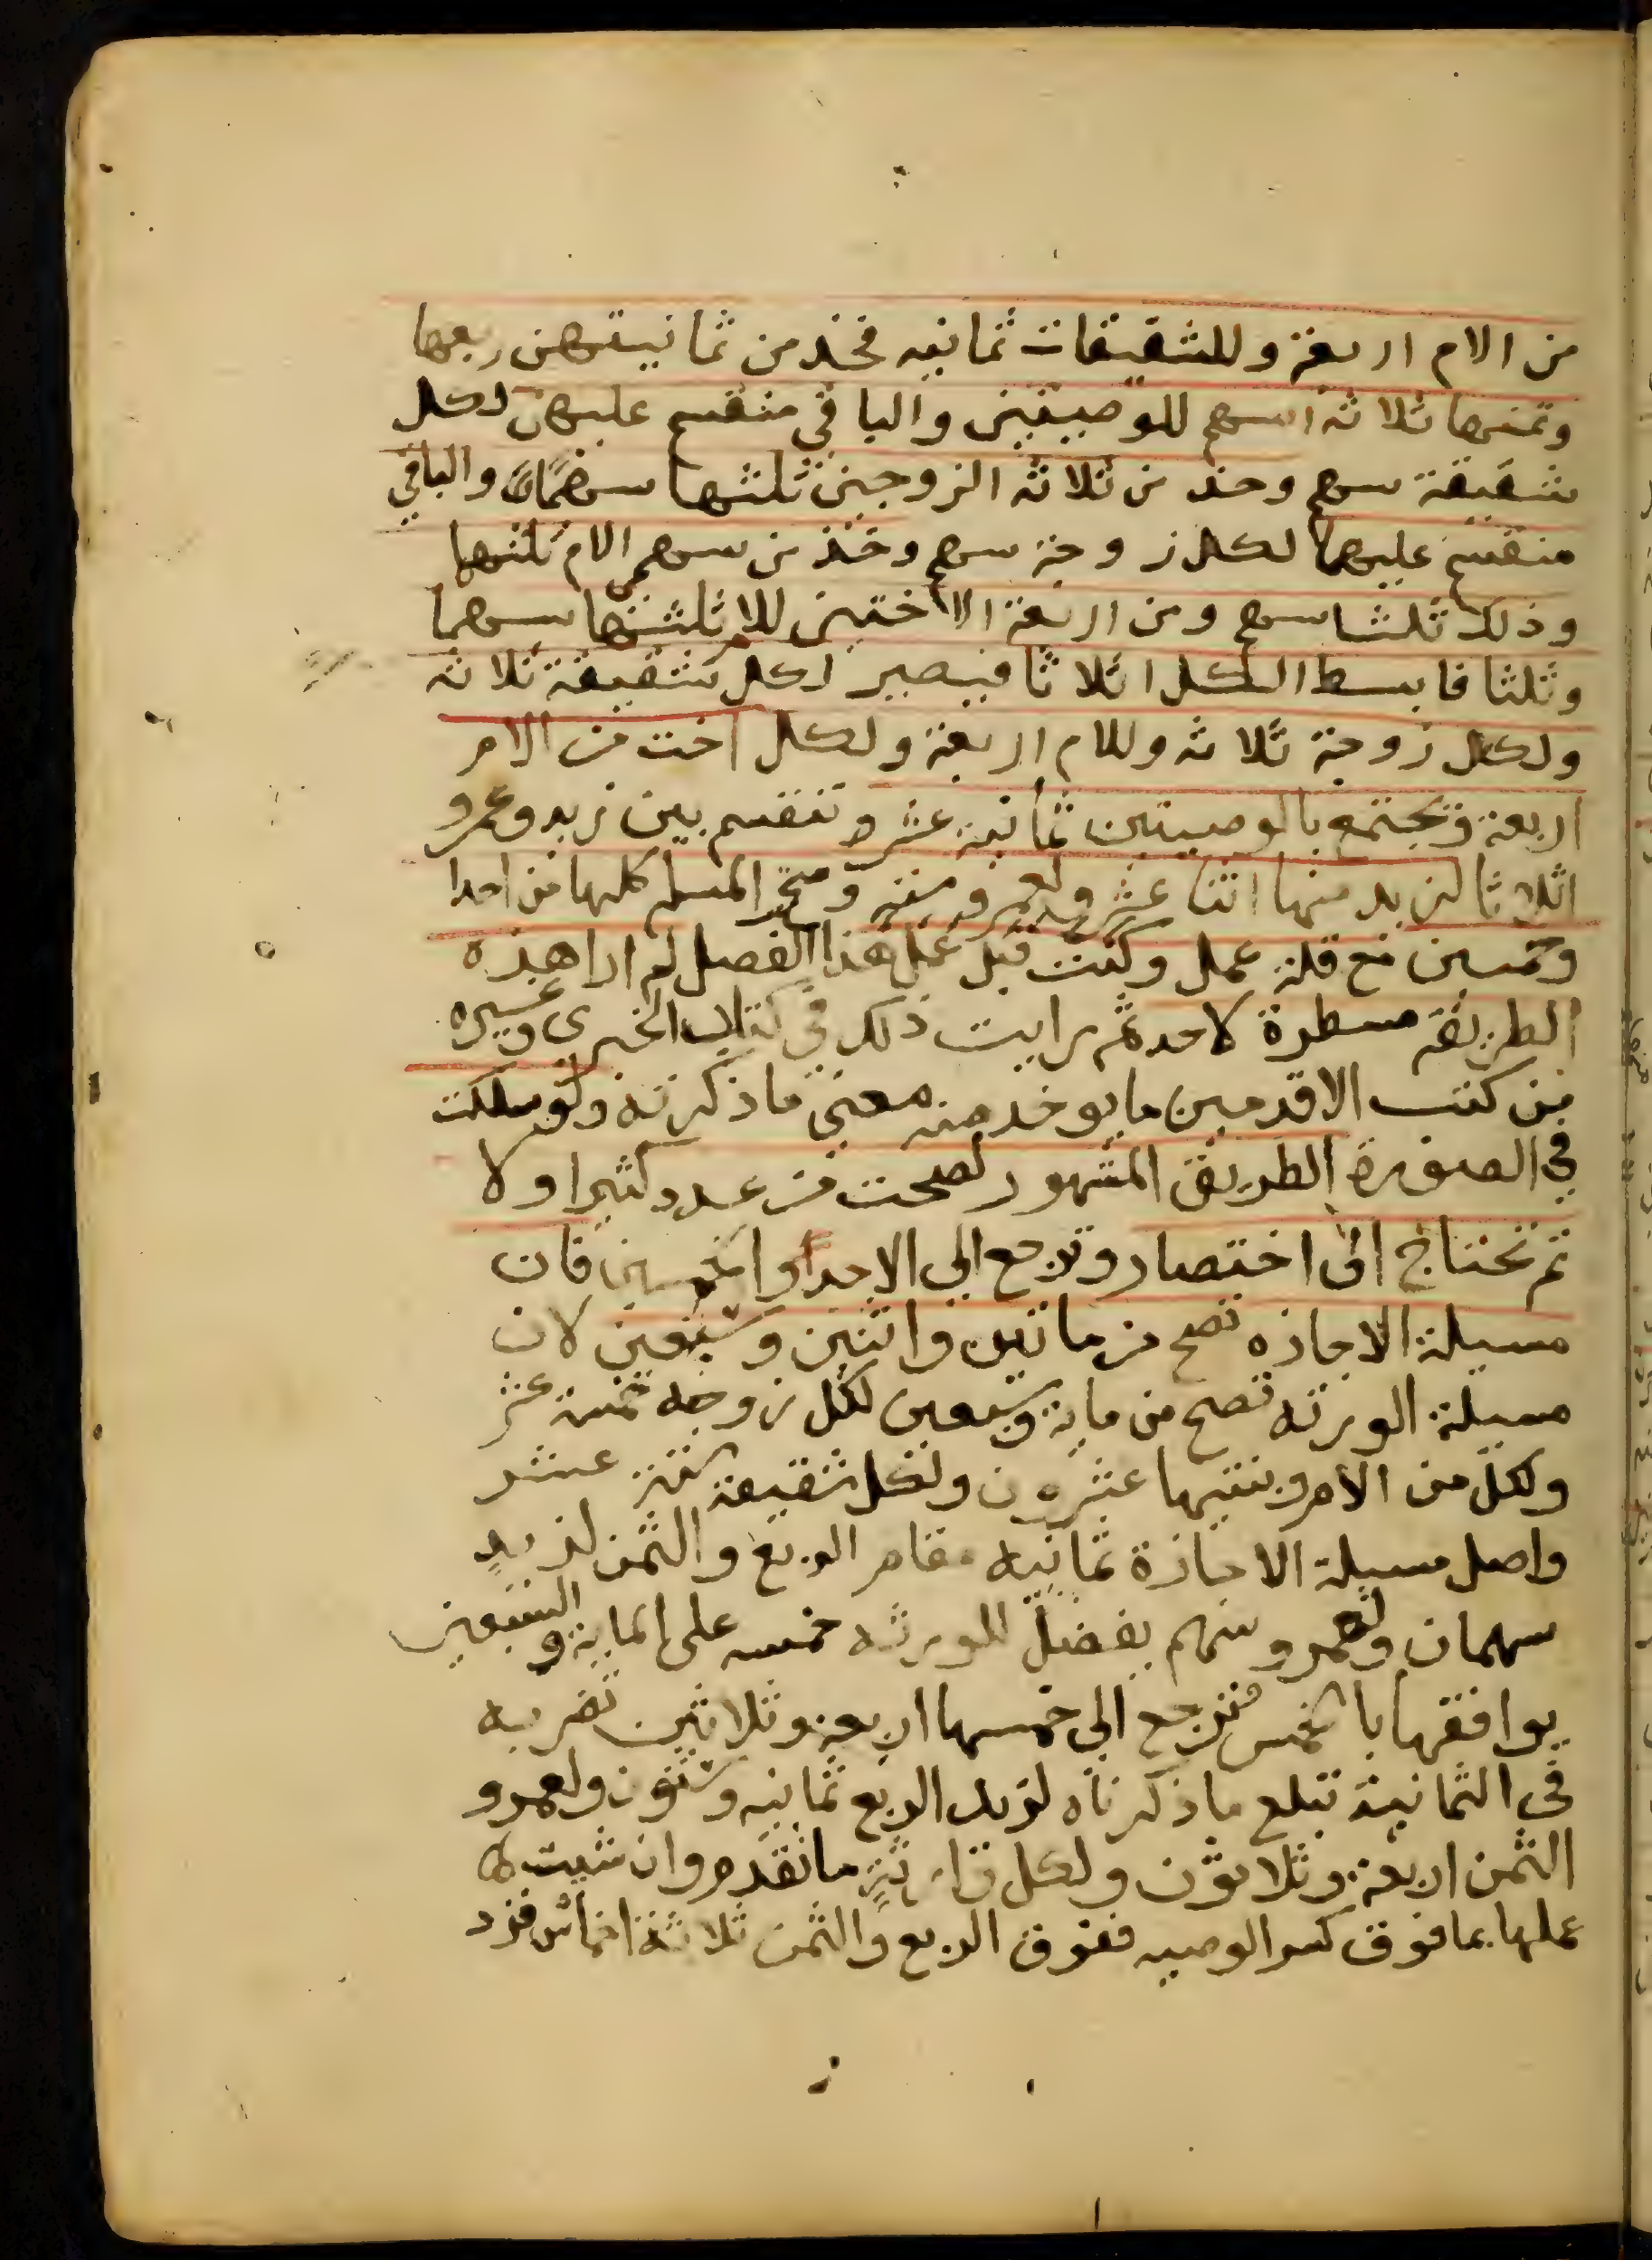 من الام اربعة وللشقيقات ثمانيه فخذ من ثمانيتهن ربعها
وثمنها ثلاثة اسهم للوصيتين والباقي منقسم عليهن لكل
شقيقة سهم وخذ من ثلاثة الزوجين ثلثها سهما والباقي
منقسم عليهما لكل زوجة سهم وخذ من سهم الام ثلثها
وذلك ثلثا سهم ومن اربعة الاختين للام ثلثها سهما
وثلثا فابسط الكل اثلاثا فيصير لكل شقيقة ثلاثه
ولكل زوجة ثلاثه وللام اربعة ولكل اخت من الام
اربعة وتجتمع بالوصيتين ثمانية عشر وتنقسم بين زيد وعمرو
اثلاثا لزيد منها اثنا عشر ولعمرو ستة وتصح المسله كلها من احدا
وخمسين مع قلة عمل وكنت قبل عمل هذا الفصل لم ارا هذه
الطريقة مسطرة لاحد ثم رايت ذلك في كتاب الخبري وغيره
من كتب الاقدمين ما يوخد منه معنى ما ذكرته ولو سلكت
في الصورة الطريق المشهور لصحت من عدد كثير اولا
ثم تحتاج الى اختصار وترجع الى الاحدا والخمسين فان
مسيلة الاجازه تصح من ماتين واثنين وسبعين لان
مسيلة الورثه تصح من ماية وسبعين لكل زوجه خمسة عشر
ولكل من الام وبنتيها عشرون ولكل شقيقة ستة عشر
واصل مسيلة الاجازة ثمانيه مقام الربع والثمن لزيد
سهمان ولعمرو سهم يفضل للورثه خمسه على الماية والسبعين
يوافقها بالخمس فترجع الى خمسها اربعة وثلاثين تضربه
في الثمانية تبلع ما ذكرناه لزيد الربع ثمانيه وستون ولعمرو
الثمن اربعة وثلاثون ولكل وارث ما تقدم وان شيت
عملها بما فوق كسر الوصيه ففوق الربع والثمن ثلاثة اخماس فزد